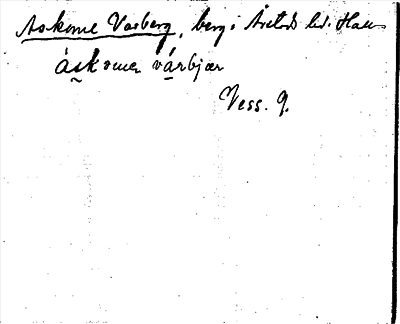 Askome Varberg, berg i Årstad hd. Hall
áskomer várbjær
Vess. 9.